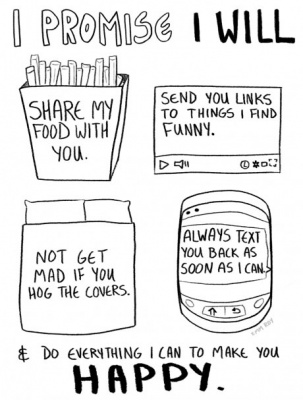 I PROMISE I WILL
SHARE MY
FOOD WITH
YOU.
SEND YOU LINKS
TO THINGS I FIND
FUNNY.
NOT GET
MAD IF YOU
HOG THE COVERS.
ALWAYS TEXT
YOU BACK AS
SOON AS I CAN.
& DO EVERYTHING I CAN TO MAKE YOU
HAPPY.